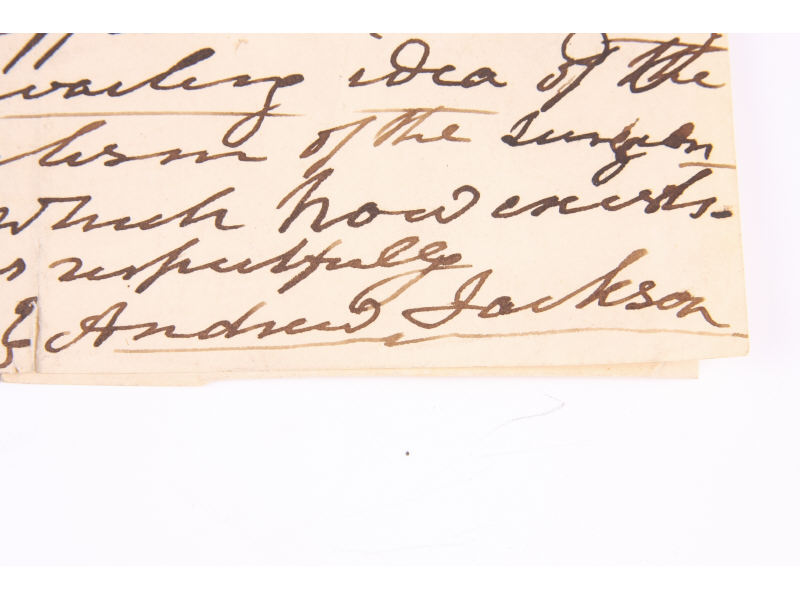 idea of the
of the surgeon
which now exists.
respectfully
Andrew Jackson